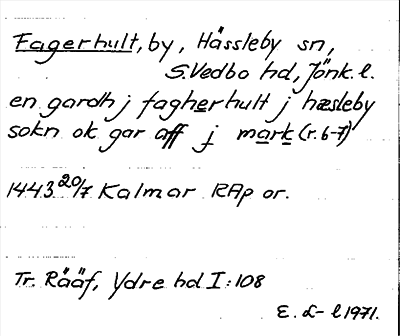 Fagerhult, by, Hässleby sn,
S. Vedbo hd, Jönk. l.
en gardh j fagherhult j hæsleby
sokn ok gar aff j mark (r. 6-7)
1443 20/7 Kalmar RAp or.
Tr. Rääf, Ydre hd I: 108
E. L-l 1971.